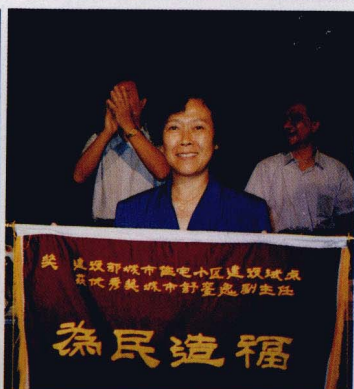 奖 建设部城市住宅小区建设试点
获优秀奖城市副主任
為民造福